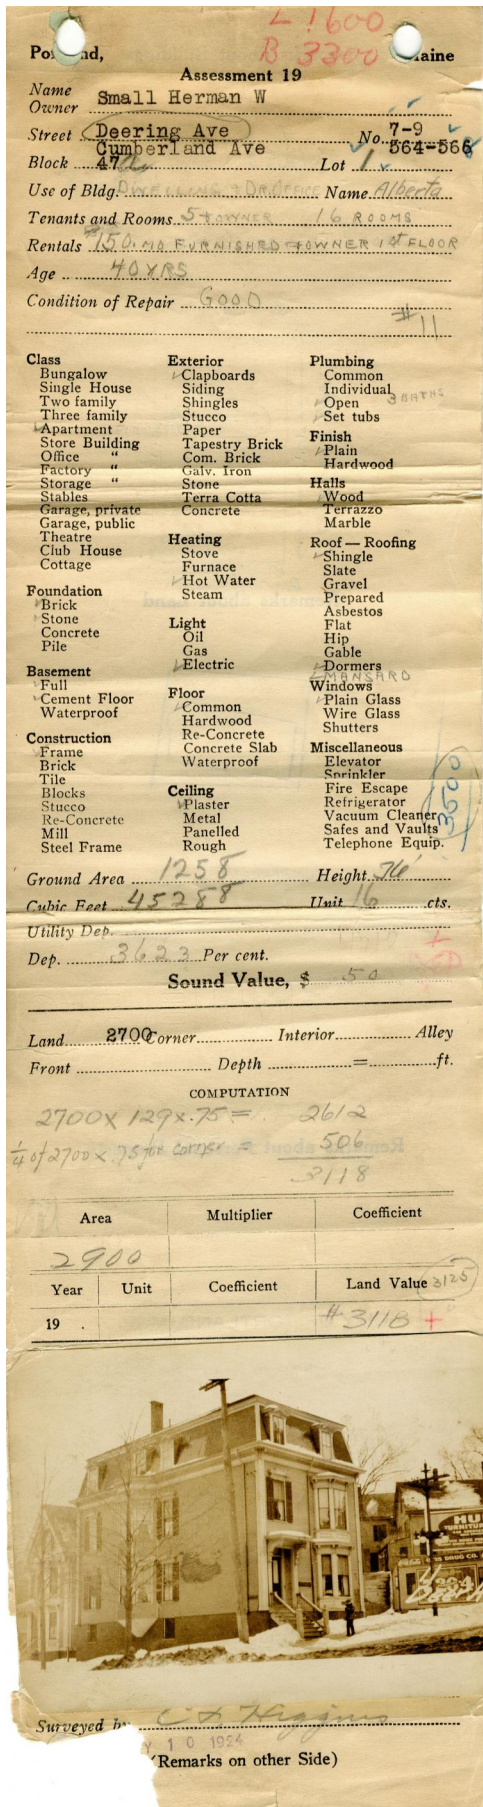 L 1600
B 3300
Po nd, aine
Assessment 19
Name
Owner Small Herman W
Street Deering Ave No. 7-9
Cumberland Ave 564-566
Block 47 Lot 1
Use of Bldg. DWELLING + DR. OFFICE Name Alberta
Tenants and Rooms 5 + OWNER 16 ROOMS
Rentals $150. MO FURNISHED + OWNER 1ST FLOOR
Age 40 YRS
Condition of Repair GOOD
#11
Class
Bungalow
Single House
Two family
Three family
✓Apartment
Store Building
Office "
Factory "
Storage "
Stables
Garage, private
Garage, public
Theatre
Club House
Cottage
Foundation
✓Brick
✓Stone
Concrete
Pile
Basement
✓Full
✓Cement Floor
Waterproof
Construction
✓Frame
Brick
Tile
Blocks
Stucco
Re-Concrete
Mill
Steel Frame
Exterior
✓Clapboards
Siding
Shingles
Stucco
Paper
Tapestry Brick
Com. Brick
Galv. Iron
Stone
Terra Cotta
Concrete
Heating
Stove
Furnace
✓Hot Water
Steam
Light
Oil
Gas
✓Electric
Floor
✓Common
Hardwood
Re-Concrete
Concrete Slab
Waterproof
Ceiling
✓Plaster
Metal
Panelled
Rough
Plumbing
Common
Individual
✓Open 3 BATHS
✓Set tubs
Finish
✓Plain
Hardwood
Halls
✓Wood
Terrazzo
Marble
Roof — Roofing
✓Shingle
Slate
Gravel
Prepared
Asbestos
Flat
Hip
Gable
✓Dormers
✓MANSARD
Windows
✓Plain Glass
Wire Glass
Shutters
Miscellaneous
Elevator
Sprinkler
Fire Escape
Refrigerator
Vacuum Cleaner
Safes and Vaults
Telephone Equip.
3500
Ground Area 1258 Height 36'
Cubic Feet 45288 Unit 16 cts.
Utility Dep.
Dep. 3623 Per cent.
Sound Value, $ 50
Land 2700 Corner Interior Alley
Front Depth = ft.
COMPUTATION
2700 x 129 x .75 = 2612
¼ of 2700 x .75 for corner = 506
3118
Area Multiplier Coefficient
2900
Year Unit Coefficient Land Value 3125
19 . #3118 +
HU
FURNITUR
DRUG CO.
Surveyed by
Y 10 1924
(Remarks on other Side)